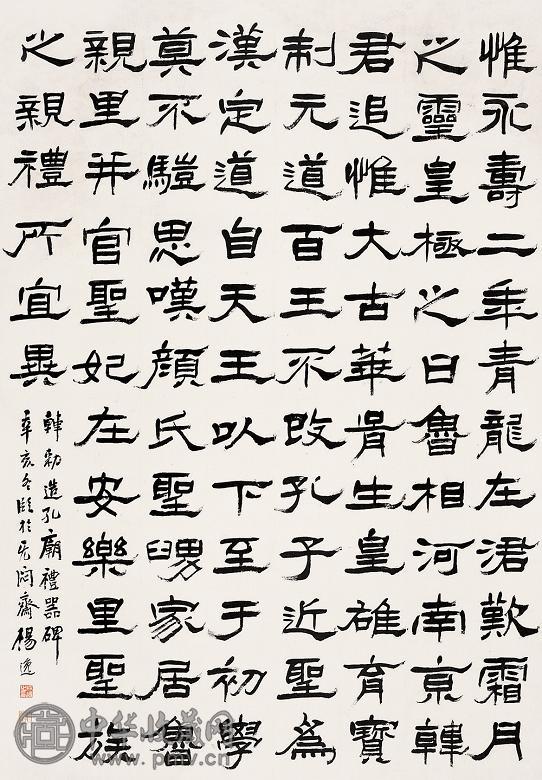 惟永壽二年青龍在涒歎霜月
之靈皇極之日魯相河南京韓
君追惟大古華胥生皇雄育寶
制元道百王不改孔子近聖爲
漢定道自天王以下至于初學
莫不𩥉思嘆顏氏聖舅家居魯
親里并官聖妃在安樂里聖族
之親禮所宜異
韓勑造孔廟禮器碑
辛亥冬臨於无悶齋楊逸
中华收藏网